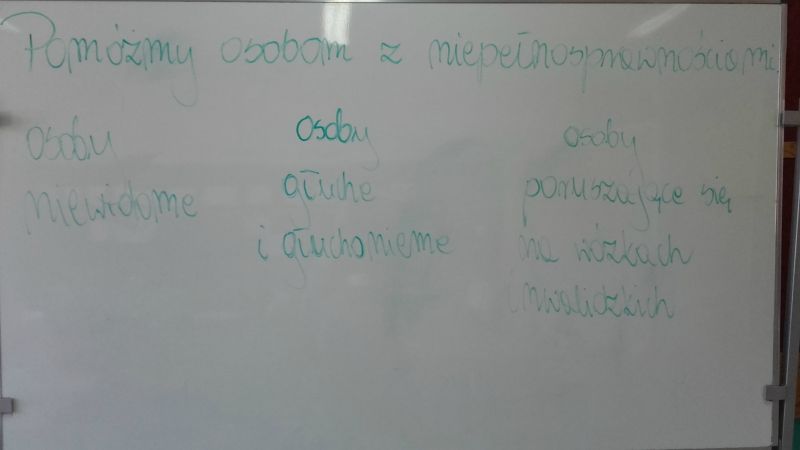 Pomóżmy osobom z niepełnosprawnościami.
osoby
niewidome
osoby
głuche
i głuchonieme
osoby
poruszające się
na wózkach
inwalidzkich